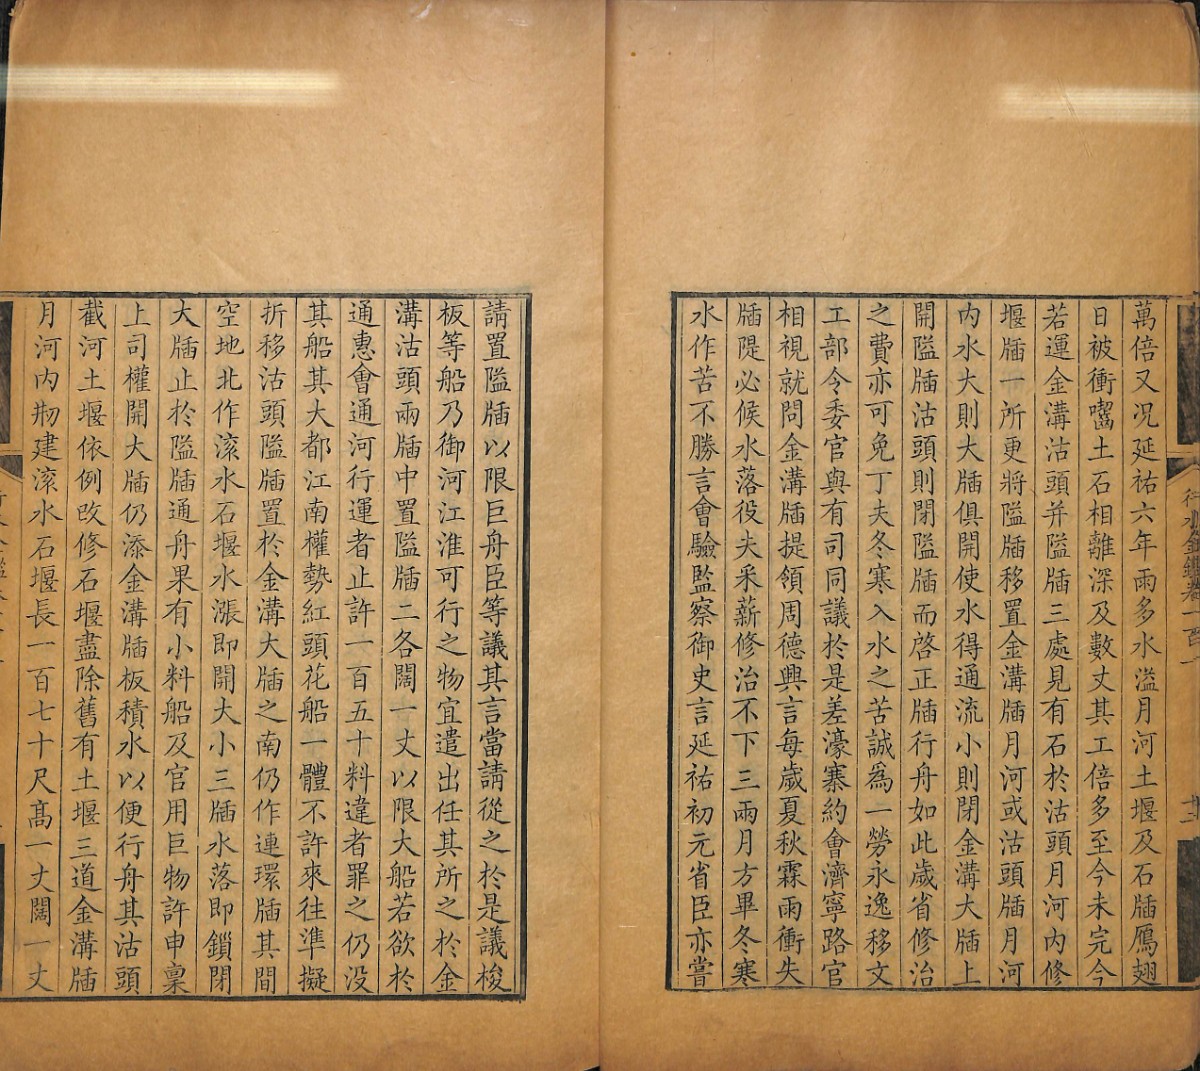 萬倍又况延祐六年雨多水溢月河土堰及石牐鴈翅
日被衝嚙土石相離深及數丈其工倍多至今未完今
若運金溝沽頭并隘牐三處見有石於沽頭月河內修
堰牐一所更將隘牐移置金溝牐月河或沽頭牐月河
內水大則大牐俱開使水得通流小則閉金溝大牐上
開隘牐沽頭則閉隘牐而啓正牐行舟如此歲省修治
之費亦可免丁夫冬寒入水之苦誠為一勞永逸移文
工部令委官與有司同議於是差濠寨約會濟寧路官
相視就問金溝牐提領周德興言每歲夏秋霖雨衝失
牐隄必候水落役夫采薪修治不下三兩月方畢冬寒
水作苦不勝言會驗監察御史言延祐初元省臣亦嘗
請置隘牐以限巨舟臣等議其言當請從之於是議梭
板等船乃御河江淮可行之物宜遣出任其所之於金
溝沽頭兩牐中置隘牐二各闊一丈以限大船若欲於
通惠會通河行運者止許一百五十料違者罪之仍没
其船其大都江南權勢紅頭花船一體不許來往準擬
折移沽頭隘牐置於金溝大牐之南仍作連環牐其間
空地北作滚水石堰水漲即開大小三牐水落即鎖閉
大牐止於隘牐通舟果有小料船及官用巨物許申稟
上司權開大牐仍添金溝牐板積水以便行舟其沽頭
截河土堰依例改修石堰盡除舊有土堰三道金溝牐
月河內刱建滚水石堰長一百七十尺髙一丈闊一丈
行水金鑑卷一百一